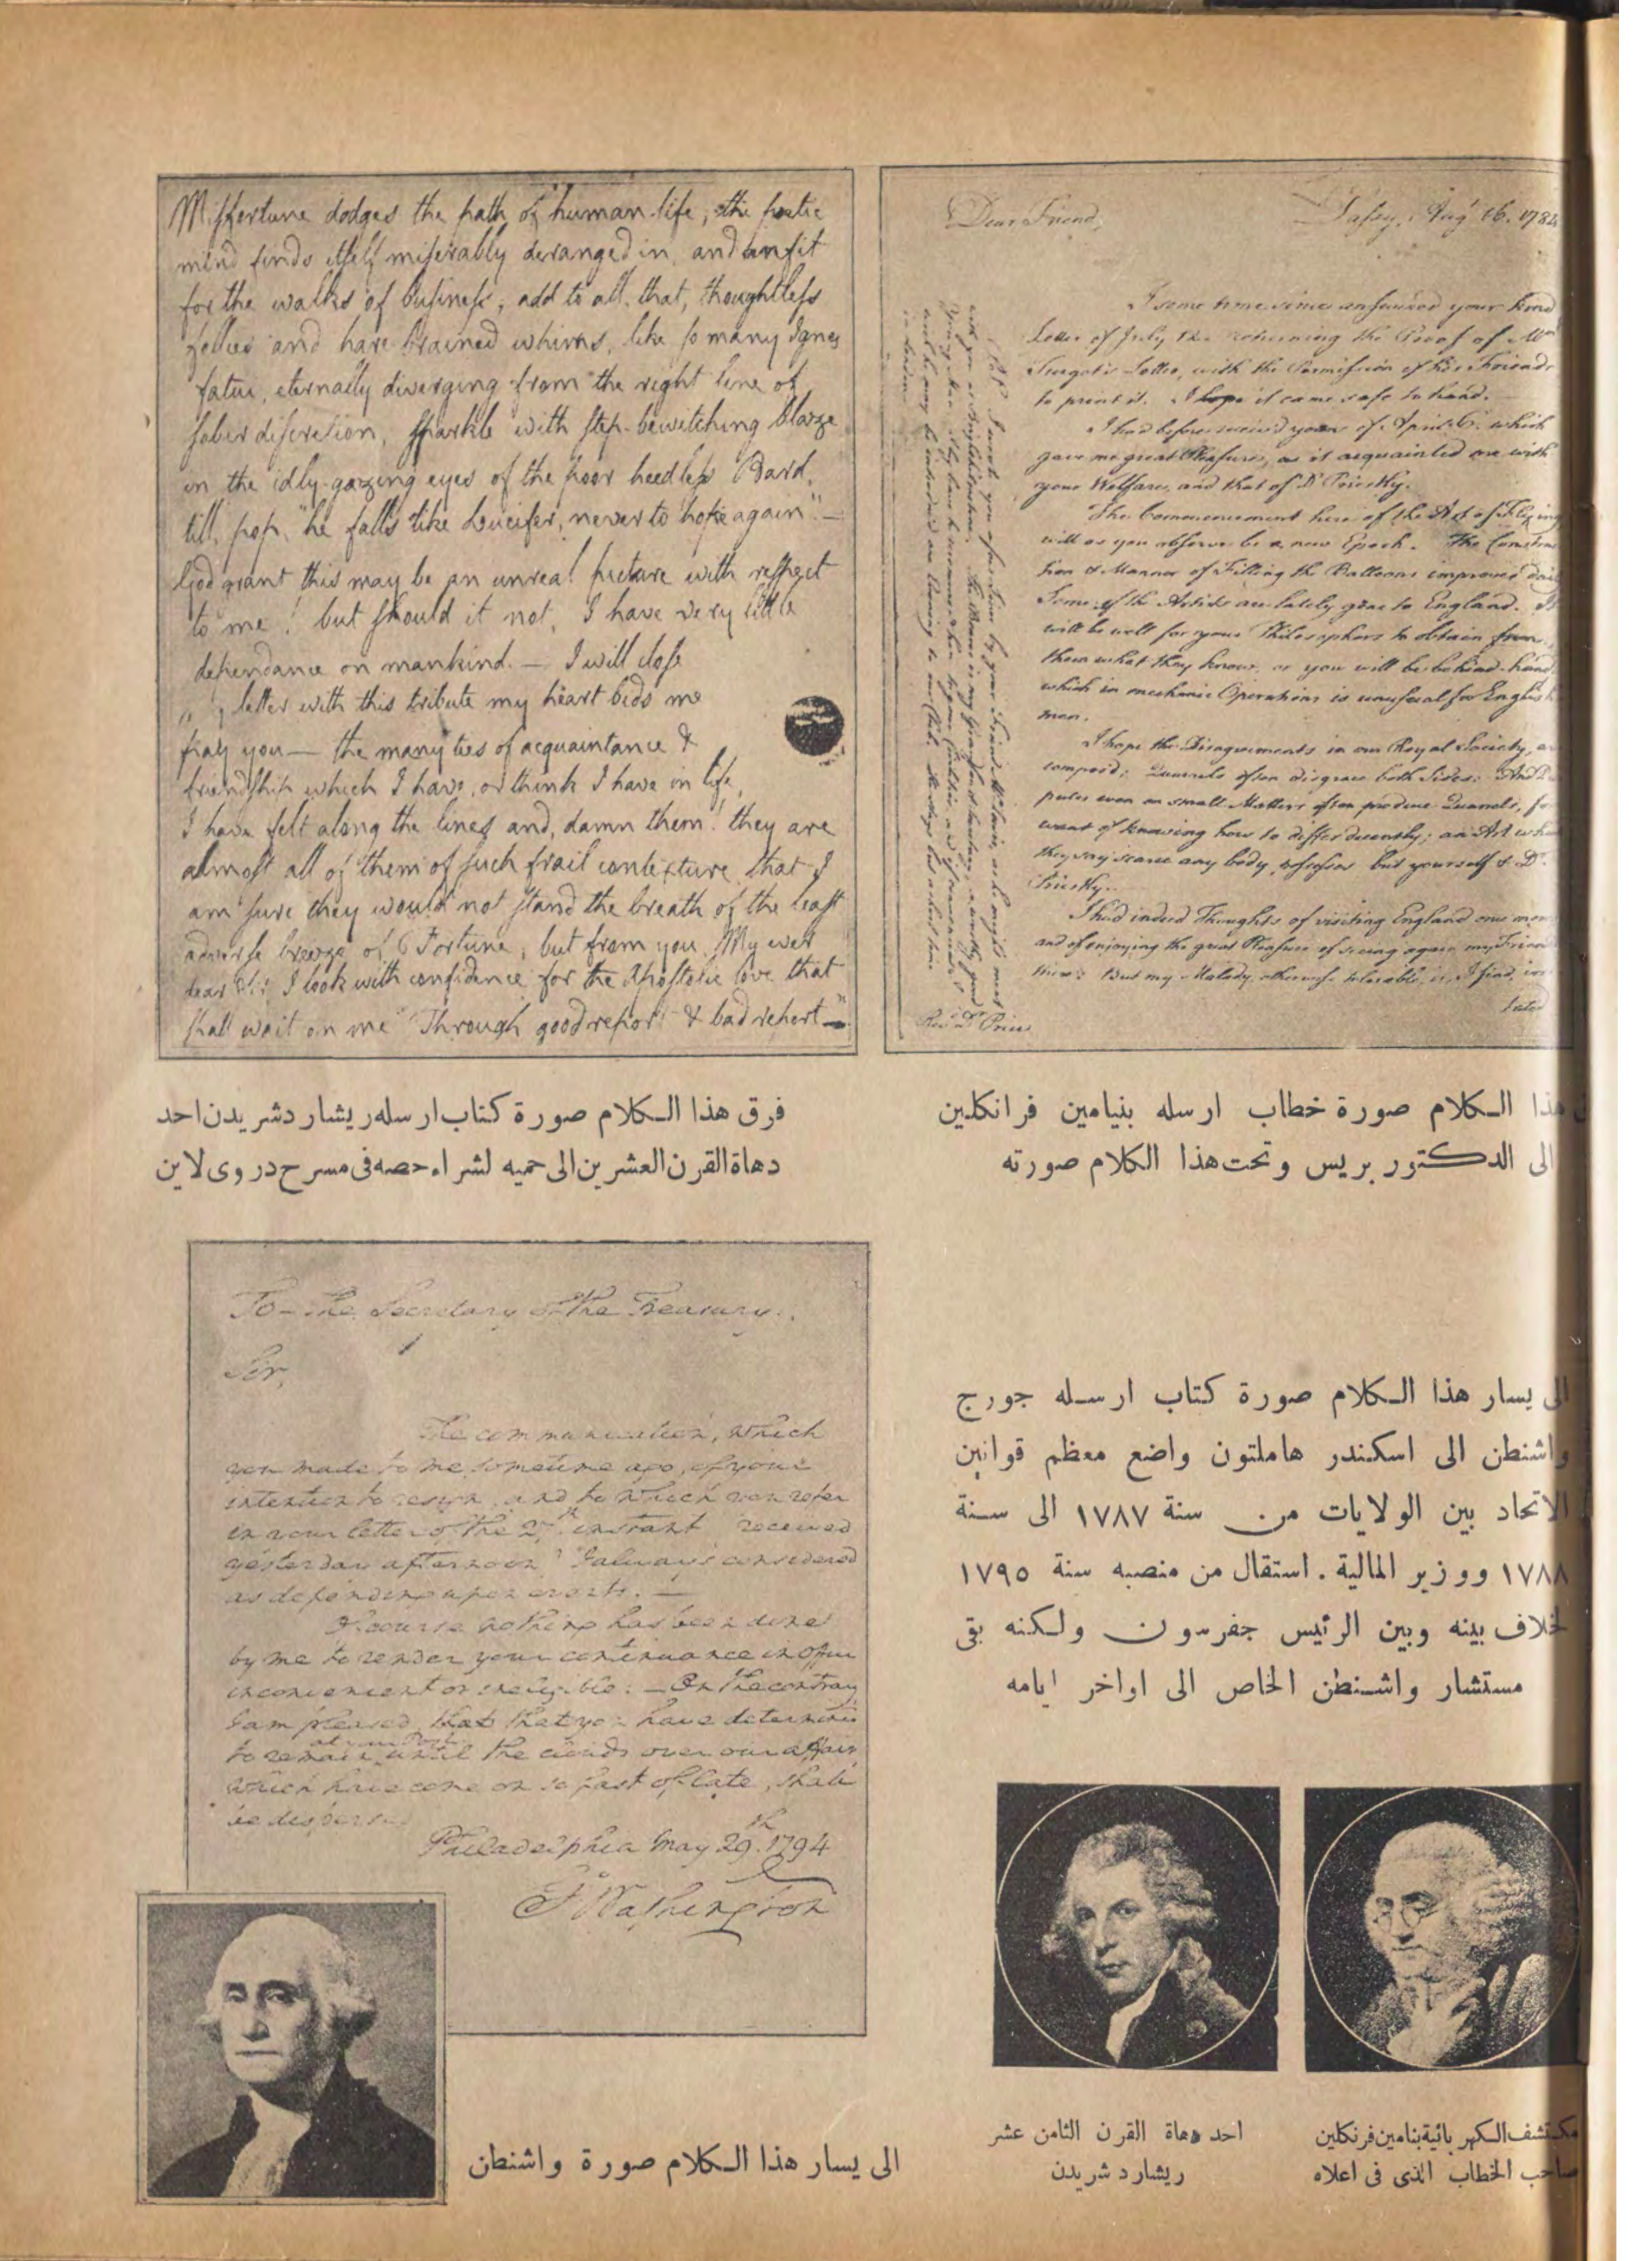 Misfortune dodges the path of human life; the poetic
mind finds itself miserably deranged in, and unfit
for the walks of business; add to all that, thoughtless
follies and hare brained whims, like so many Ignes
fatui, eternally diverging from the right line of
sober discretion, sparkle with step-bewitching blaze
in the idly-gazing eyes of the poor heedless Bard,
till, pop, "he falls like Lucifer, never to hope again". —
God grant this may be an unreal picture with respect
to me! but should it not, I have very little
dependance on mankind. — I will close
letter with this tribute my heart bids me
pay you — the many ties of acquaintance &
friendship which I have, or think I have in life,
I have felt along the lines and, damn them! they are
almost all of them of such frail contexture, that I
am sure they would not stand the breath of the least
adverse breeze of Fortune; but from you, My ever
dear Sir, I look with confidence for the Apostolic love that
shall wait on me "Through good report & bad report" —
Dear Friend, Passy, Aug 16. 1784
I some time since answered your kind
Letter of July 12. returning the Proof of Mr
Turgot's Letter, with the Permission of his Friends
to print it. I hope it came safe to hand.
I had before received yours of April 6. which
gave me great Pleasure, as it acquainted me with
your Welfare, and that of Dr Priestley.
The Commencement here of the Art of Flying
will as you observe be a new Epoch. The Construc
tion & Manner of Filling the Balloons improves dai
Some of the Artists are lately gone to England. It
will be well for your Philosophers to obtain from
them what they know, or you will be behind hand,
which in mechanic Operations is unusual for English
men.
I hope the Disagreements in our Royal Society, are
compos'd; Quarrels often disgrace both Sides; And Dis
putes even on small Matters often produce Quarrels, for
want of knowing how to differ decently; an Art which
they say scarce any body possesses but yourself & Dr.
Priestley.
I had indeed Thoughts of visiting England once more
and of enjoying the great Pleasure of seeing again my Friends
there: But my Malady, otherwise tolerable, is, I find,
Revd Dr Price
هذا الكلام صورة خطاب ارسله بنيامين فرانكلين
الى الدكتور بريس وتحت هذا الكلام صورته
فرق هذا الكلام صورة كتاب ارسله ريشارد شريدن احد
دهاة القرن العشرين الى حميه لشراء حصه فى مسرح دروى لاين
To the Secretary of the Treasury.
Sir,
The communication, which
you made to me sometime ago, of your
intention to resign, and to which you refer
in your letter of the 27th instant received
yesterday afternoon I always considered
as depending upon events. —
Of course nothing has been done
by me to render your continuance in office
inconvenient or ineligible: — On the contrary
I am pleased, that you have determined
to remain at your Post until the clouds over our affairs
which have come on so fast of late, shall
be dispersed
Philadelphia May 29th. 1794
G Washington
الى يسار هذا الكلام صورة كتاب ارسله جورج
واشنطن الى اسكندر هاملتون واضع معظم قوانين
الاتحاد بين الولايات من سنة ١٧٨٧ الى سنة
١٧٨٨ ووزير المالية . استقال من منصبه سنة ١٧٩٥
لخلاف بينه وبين الرئيس جفرسون ولكنه بقى
مستشار واشنطن الخاص الى اواخر ايامه
مكتشف الكهربائية بنامين فرنكلين
صاحب الخطاب الذى فى اعلاه
احد دهاة القرن الثامن عشر
ريشارد شريدن
الى يسار هذا الكلام صورة واشنطن